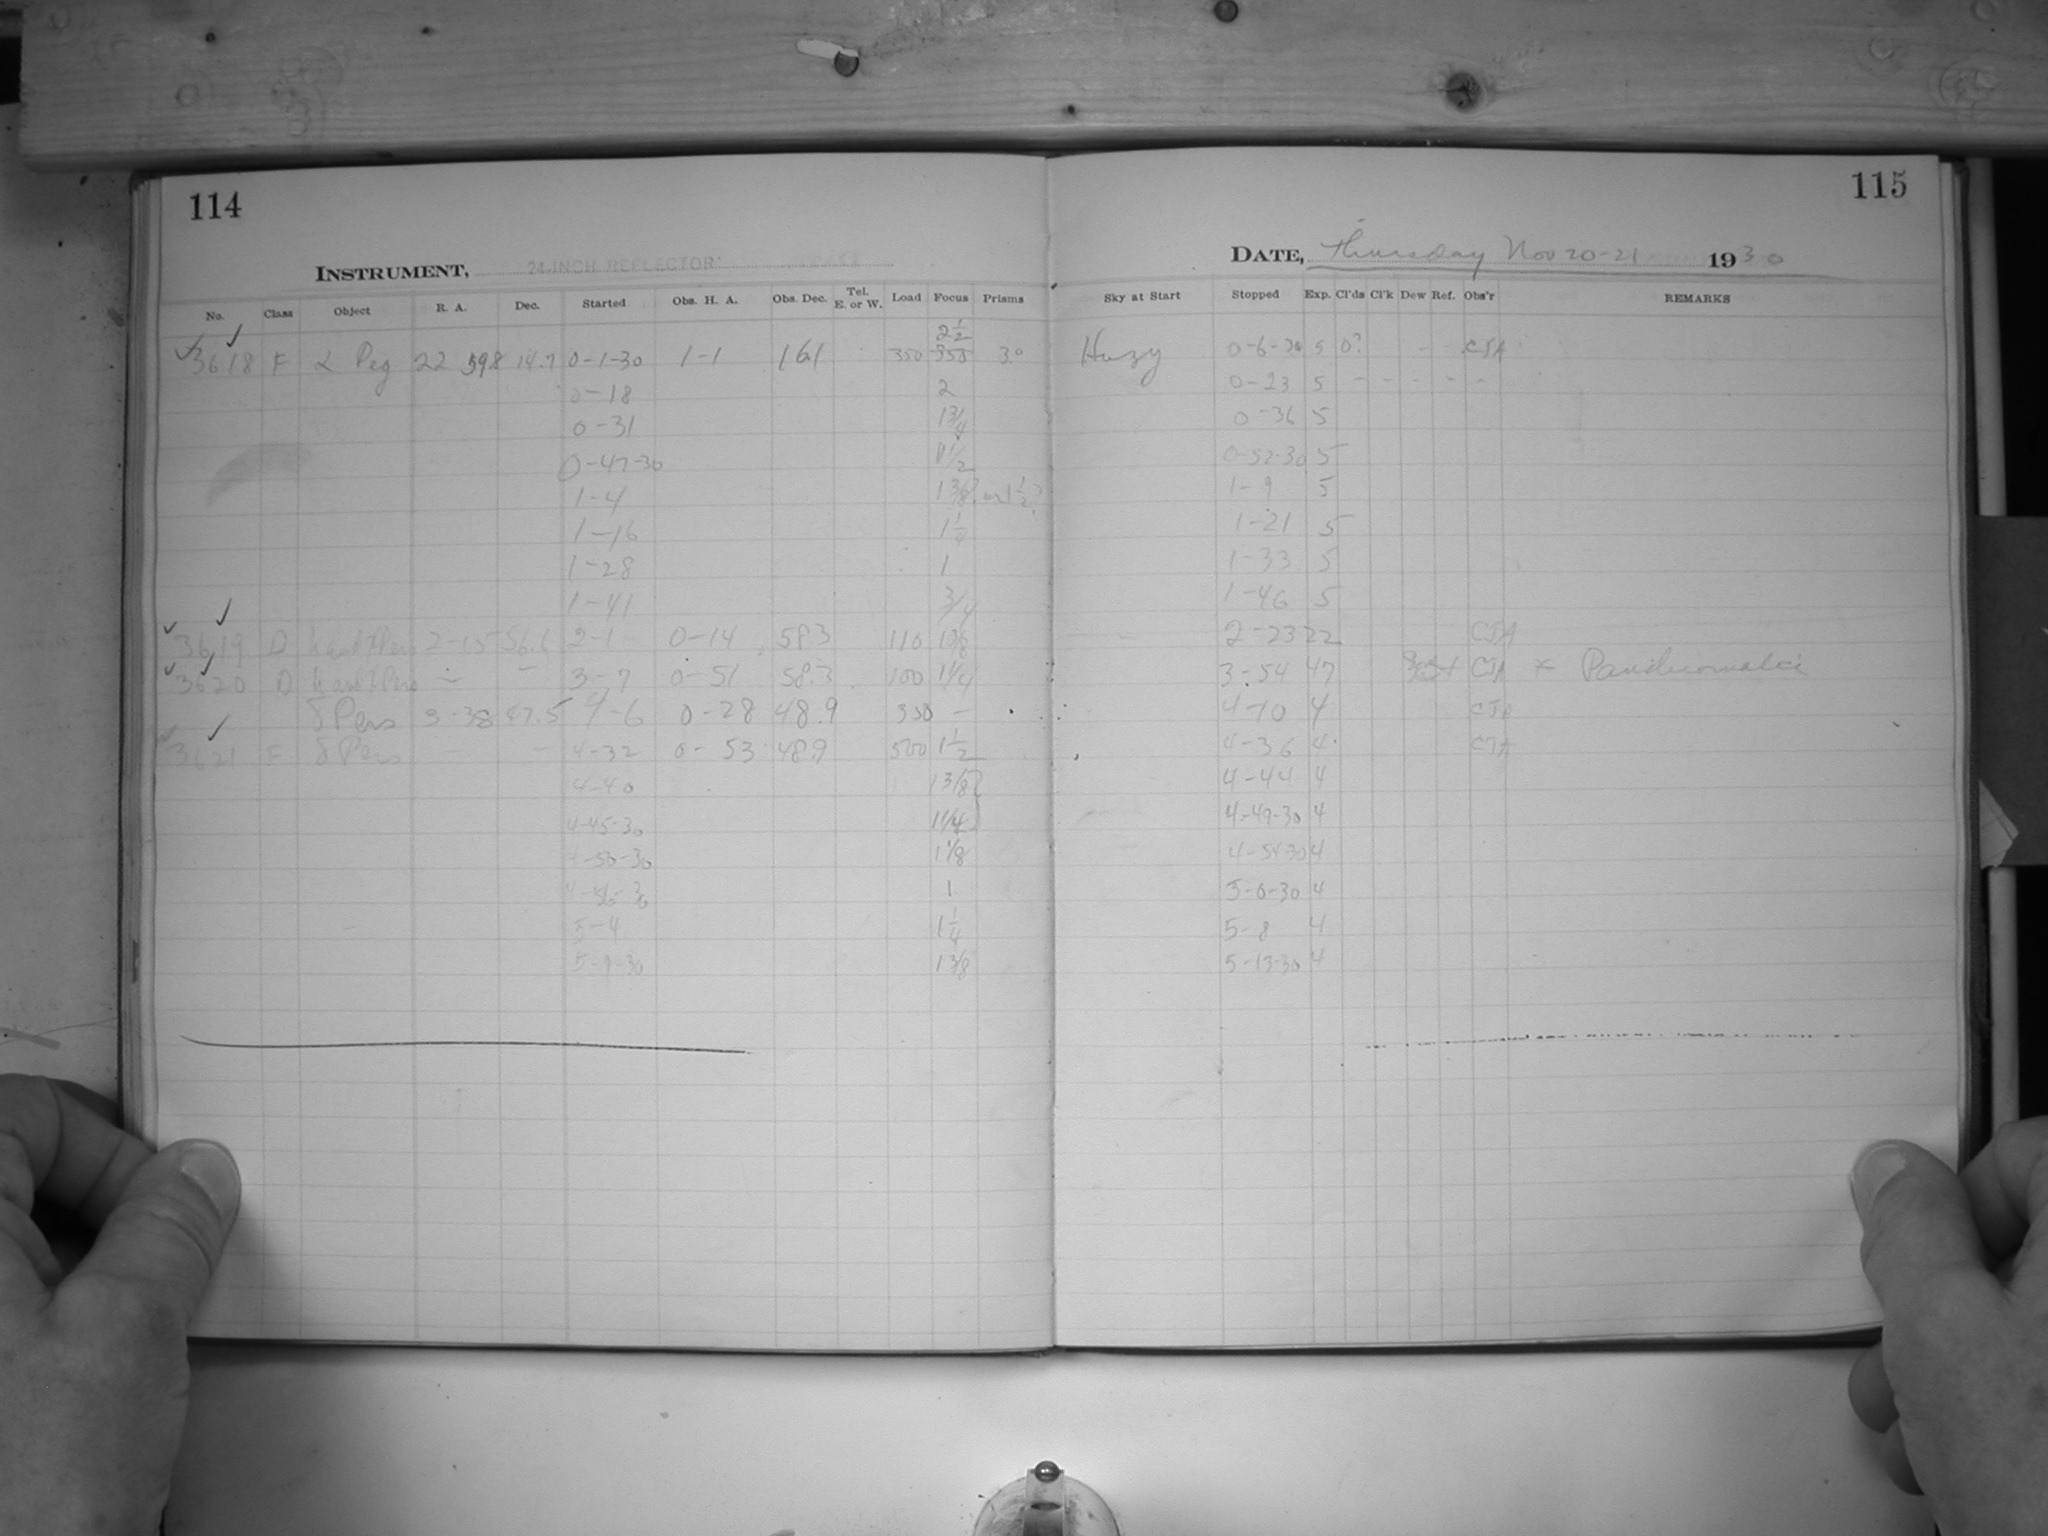 114
INSTRUMENT, 24-INCH REFLECTOR
No. Class Object R. A. Dec. Started Obs. H. A. Obs. Dec. Tel. E. or W. Load Focus Prisms
2 1/2
3618 F α Peg 22 59.8 14.7 0-1-30 1-1 16.1 350 350 3°
0-18 2
0-31 1 3/4
0-47-30 1 1/2
1-4 1 3/8? or 1 1/2?
1-16 1 1/4
1-28 1
1-41 3/4
3619 D h and χ Pers 2-15 56.6 2-1 0-14 58.3 110 1 3/8
3620 D h and χ Pers - - 3-7 0-51 58.3 100 1 1/4
δ Pers 3-38 47.5 4-6 0-28 48.9 350 -
3621 F δ Pers - - 4-32 0-53 48.9 500 1 1/2
4-40 1 3/8
4-45-30 1 1/4
4-50-30 1 1/8
4-56-30 1
5-4 1 1/4
5-9-30 1 3/8
115
DATE, Thursday Nov 20-21 1930
Sky at Start Stopped Exp. Cl'ds Cl'k Dew Ref. Obs'r REMARKS
Hazy 0-6-30 5 0? - - CJA
0-23 5 - - - - -
0-36 5
0-52-30 5
1-9 5
1-21 5
1-33 5
1-46 5
2-23 22 CJA
3-54 47 CJA × Panchromatic
4-10 4 CJA
4-36 4 CJA
4-44 4
4-49-30 4
4-54-30 4
5-0-30 4
5-8 4
5-13-30 4